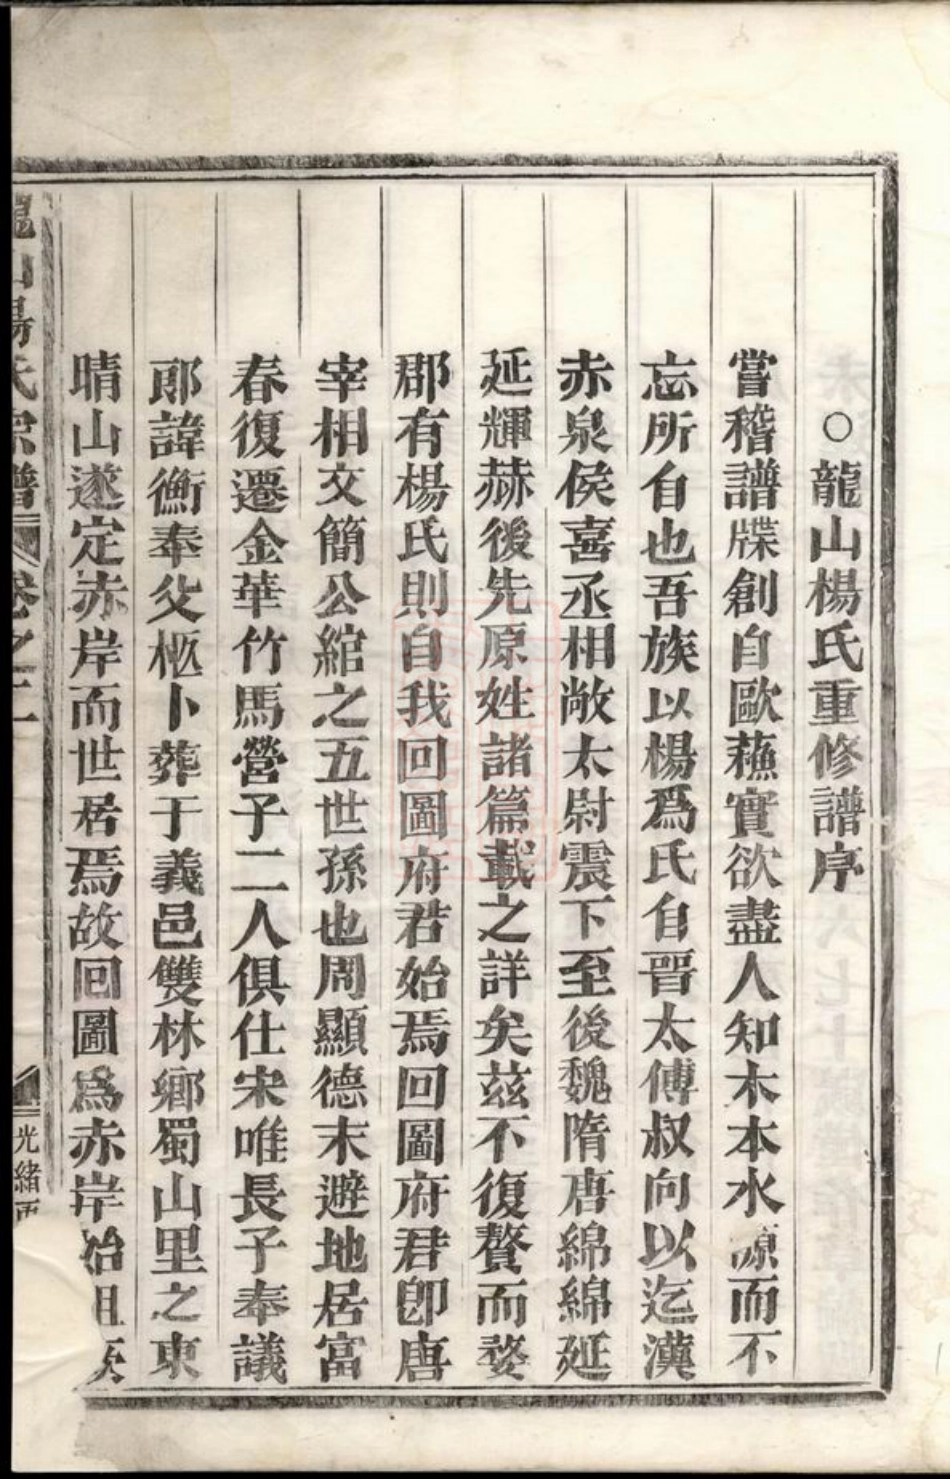 ○龍山楊氏重修譜序
嘗稽譜牒創自歐蘓實欲盡人知木本水源而不
忘所自也吾族以楊爲氏自晉太傅叔向以迄漢
赤泉侯喜丞相敞太尉震下至後魏隋唐綿綿延
延輝赫後先原姓諸篇載之詳矣茲不復贅而婺
郡有楊氏則自我回圖府君始焉回圖府君卽唐
宰相文簡公綰之五世孫也周顯德末避地居富
春復遷金華竹馬營子二人俱仕宋唯長子奉議
郎諱衡奉父柩卜葬于義邑雙林鄉蜀山里之東
晴山遂定赤岸而世居焉故回圖爲赤岸始祖
龍山楊氏宗譜 卷之一 光緒